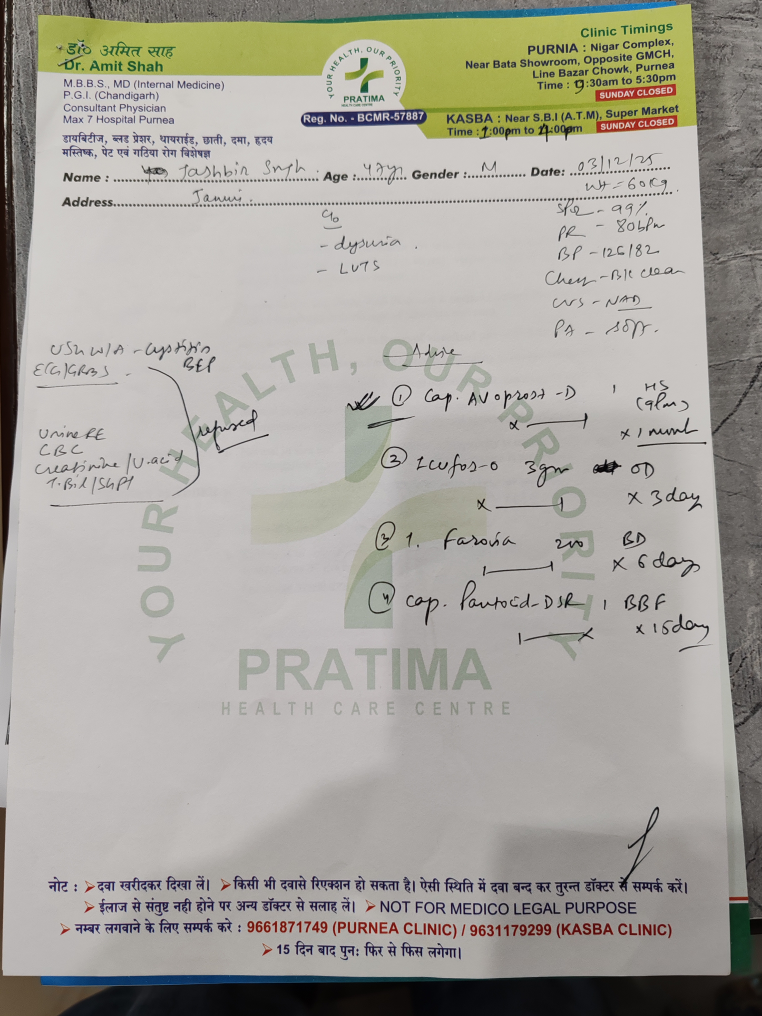 डॉ० अमित साह
Dr. Amit Shah
M.B.B.S., MD (Internal Medicine)
P.G.I. (Chandigarh)
Consultant Physician
Max 7 Hospital Purnea
डायबिटीज, ब्लड प्रेशर, थायराईड, छाती, दमा, हृदय
मस्तिष्क, पेट एवं गठिया रोग विशेषज्ञ
YOUR HEALTH, OUR PRIORITY
PRATIMA
HEALTH CARE CENTRE
Reg. No. - BCMR-57887
Clinic Timings
PURNIA : Nigar Complex,
Near Bata Showroom, Opposite GMCH,
Line Bazar Chowk, Purnea
Time : 9:30am to 5:30pm
SUNDAY CLOSED
KASBA : Near S.B.I (A.T.M), Super Market
Time : :00pm to 4:00pm SUNDAY CLOSED
Name : Jashbir Singh Age : 47yr Gender : M Date: 03/12/25
Address
Wt = 60kg
C/o
- dysuria
- LUTS
SpO2 - 99%
PR - 80bpm
BP - 126/82
Chest - B/L clean
CVS - NAD
PA - soft
USG W/A - cystitis
BEP
ECG/GRBS
Urine RE
CBC
Creatinine/U.acid
T.Bil/SGPT
refused
Advise
① Cap. AVoprost-D 1 HS
(9pm)
x 1 month
② Icufos-O 3gm OD
x 3 day
③ T. Farovia 200 BD
x 6 day
④ Cap. Pantocid-DSR 1 BBF
x 15 day
YOUR HEALTH, OUR PRIORITY
PRATIMA
HEALTH CARE CENTRE
नोट : ➤दवा खरीदकर दिखा लें। ➤किसी भी दवासे रिएक्शन हो सकता है। ऐसी स्थिति में दवा बन्द कर तुरन्त डॉक्टर से सम्पर्क करें।
➤ईलाज से संतुष्ट नही होने पर अन्य डॉक्टर से सलाह लें। ➤NOT FOR MEDICO LEGAL PURPOSE
➤नम्बर लगवाने के लिए सम्पर्क करे : 9661871749 (PURNEA CLINIC) / 9631179299 (KASBA CLINIC)
➤15 दिन बाद पुनः फिर से फिस लगेगा।